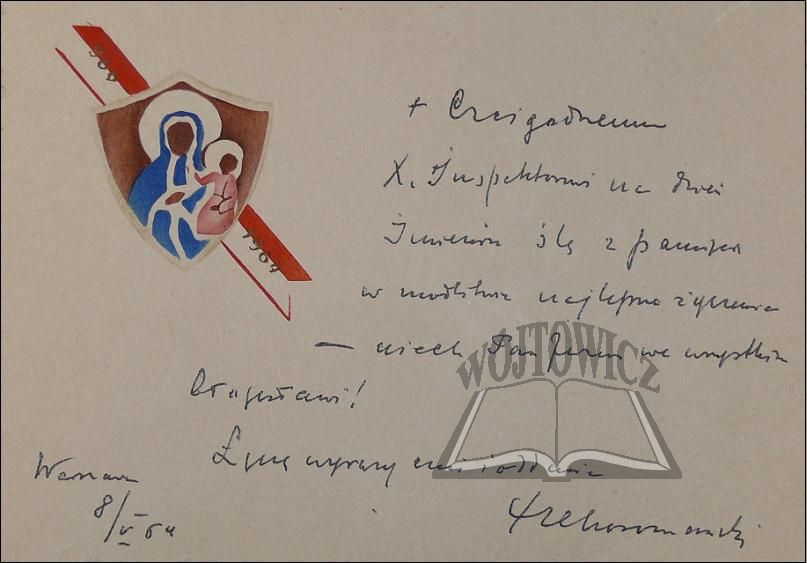 966
1964
+ Czcigodnemu
X. Inspektorowi na dzień
Imienin ślę z pamięcią
w modlitwie najlepsze życzenia
— niech Pan Jezus we wszystkim
błogosławi!
Łączę wyrazy czci i oddania
Warszawa
8/V 64
WÓJTOWICZ